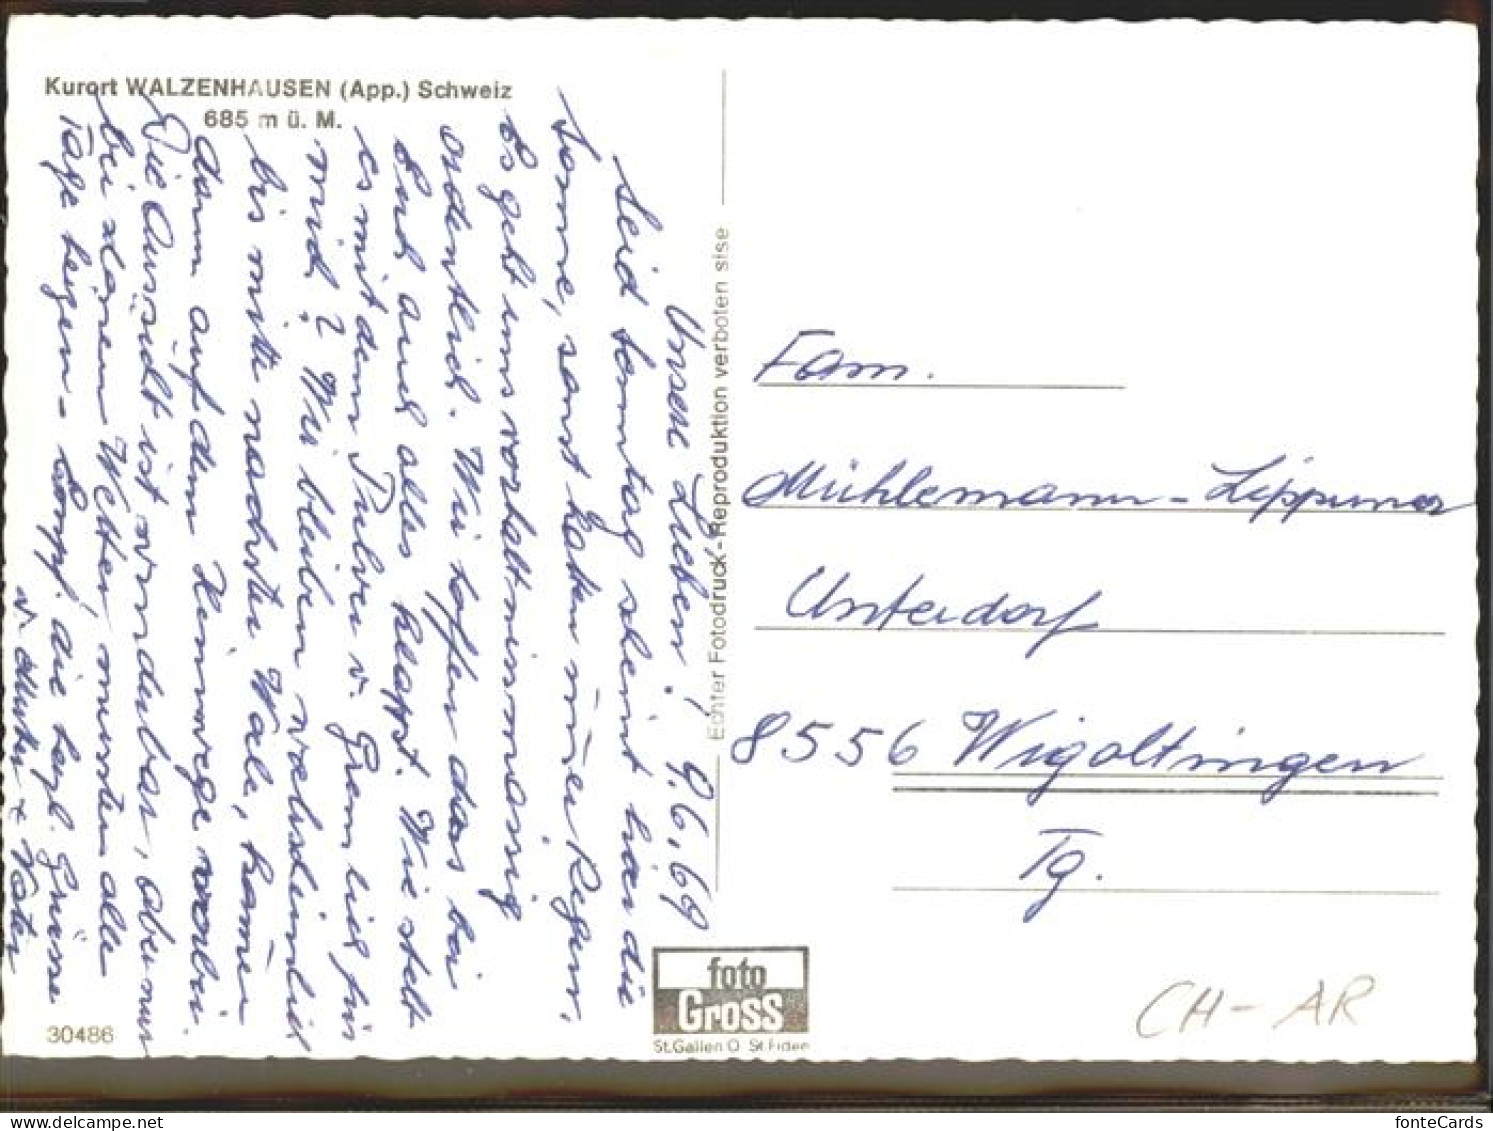 Kurort WALZENHAUSEN (App.) Schweiz
685 m ü. M.
9.6.69
Unsere Lieben!
Seid Sonntag scheint hier die
Sonne, sonst hatten immer Regen.
Es geht uns verhältnismässig
ordentlich. Wir hoffen das bei
Euch auch alles klappt. Wie steht
es mit dem Pulver v. Gremlich für
mich? Wir bleiben wahrscheinlich
bis mitte nächster Woche, kommen
dann auf dem Heimwege vorbei.
Die Aussicht ist wunderbar, aber nur
bei klarem Wetter, mussten alle
Tage liegen. Empf. die herzl. Grüsse
v. Mutter + Vater
Echter Fotodruck-Reproduktion verboten sise
Fam.
Mühlemann-Lippuner
Unterdorf
8556 Wigoltingen
Tg.
foto
Gross
St.Gallen O St.Fiden
30486
CH-AR
fonteCards